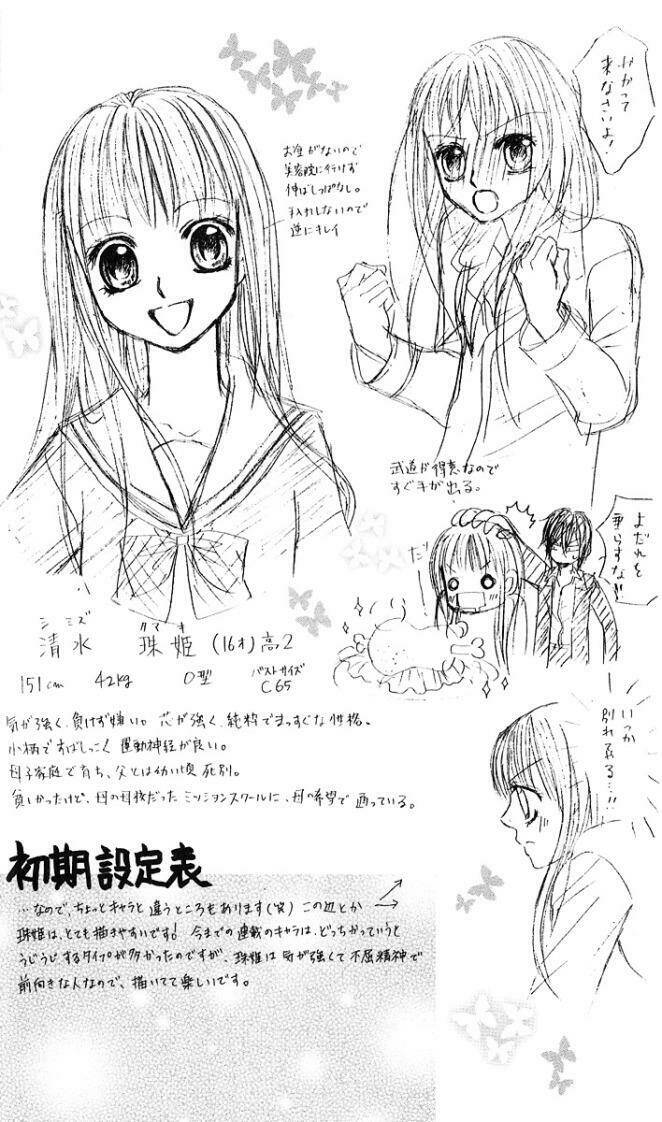 お金がないので
美容院に行けず
伸ばしっぱなし。
手入れしないので
逆にキレイ
かかって
来なさいよ!
武道が得意なので
すぐ手が出る。
よだれを
垂らすな!!
だっ
シミズ タマキ
清水 珠姫 (16才) 高2
151cm 42kg O型 バストサイズ C65
気が強く、負けず嫌い。芯が強く、純粋でまっすぐな性格。
小柄ですばしっこく 運動神経が良い。
母子家庭で育ち、父とは幼い頃 死別。
貧しかったけど、母の母校だった ミッションスクールに、母の希望で 通っている。
いつか
別れてやる…!!
初期設定表
…なので、ちょっとキャラと違うところもあります(笑) この辺とか→
珠姫は、とても描きやすいです! 今までの連載のキャラは、どっちかっていうと
うじうじするタイプが多かったのですが、珠姫は 気が強くて 不屈精神で
前向きな人なので、描いてて楽しいです。